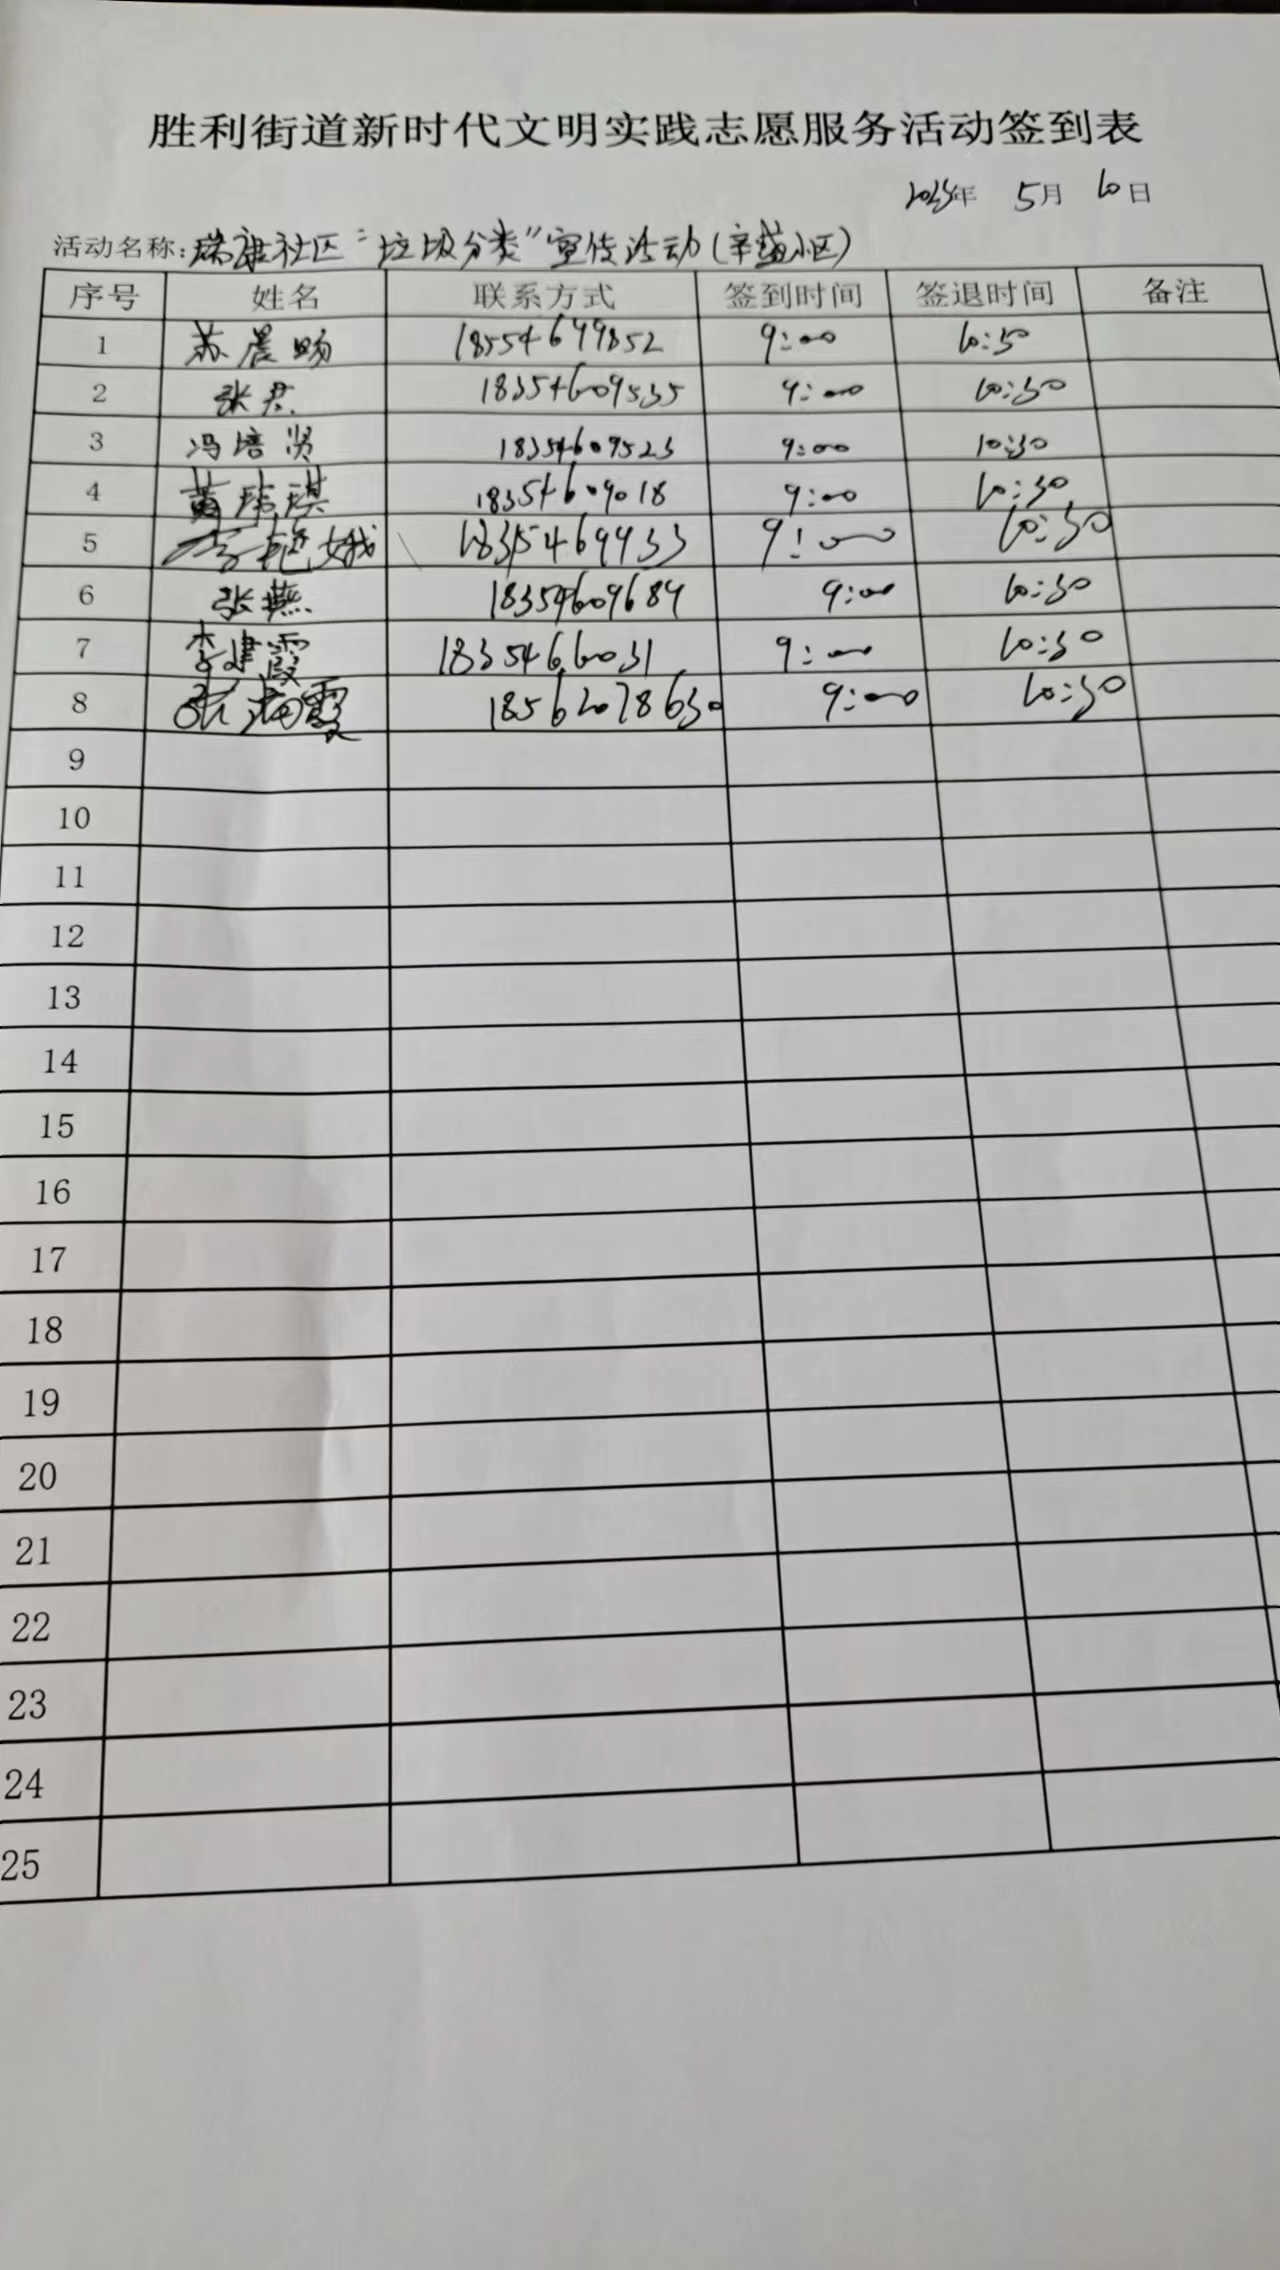 胜利街道新时代文明实践志愿服务活动签到表
年 5月 10日
活动名称：瑞康社区“垃圾分类”宣传活动（辛盛小区）
序号 姓名 联系方式 签到时间 签退时间 备注
1 苏晨旸 18554699852 9:00 10:30
2 张君 18354609535 9:00 10:30
3 冯培贤 18354609523 9:00 10:30
4 黄玮琪 18354609018 9:00 10:30
5 李艳娥 18354699933 9:00 10:30
6 张燕 18354609684 9:00 10:30
7 李建霞 18354666031 9:00 10:30
8 张霞 18562078630 9:00 10:30
9
10
11
12
13
14
15
16
17
18
19
20
21
22
23
24
25